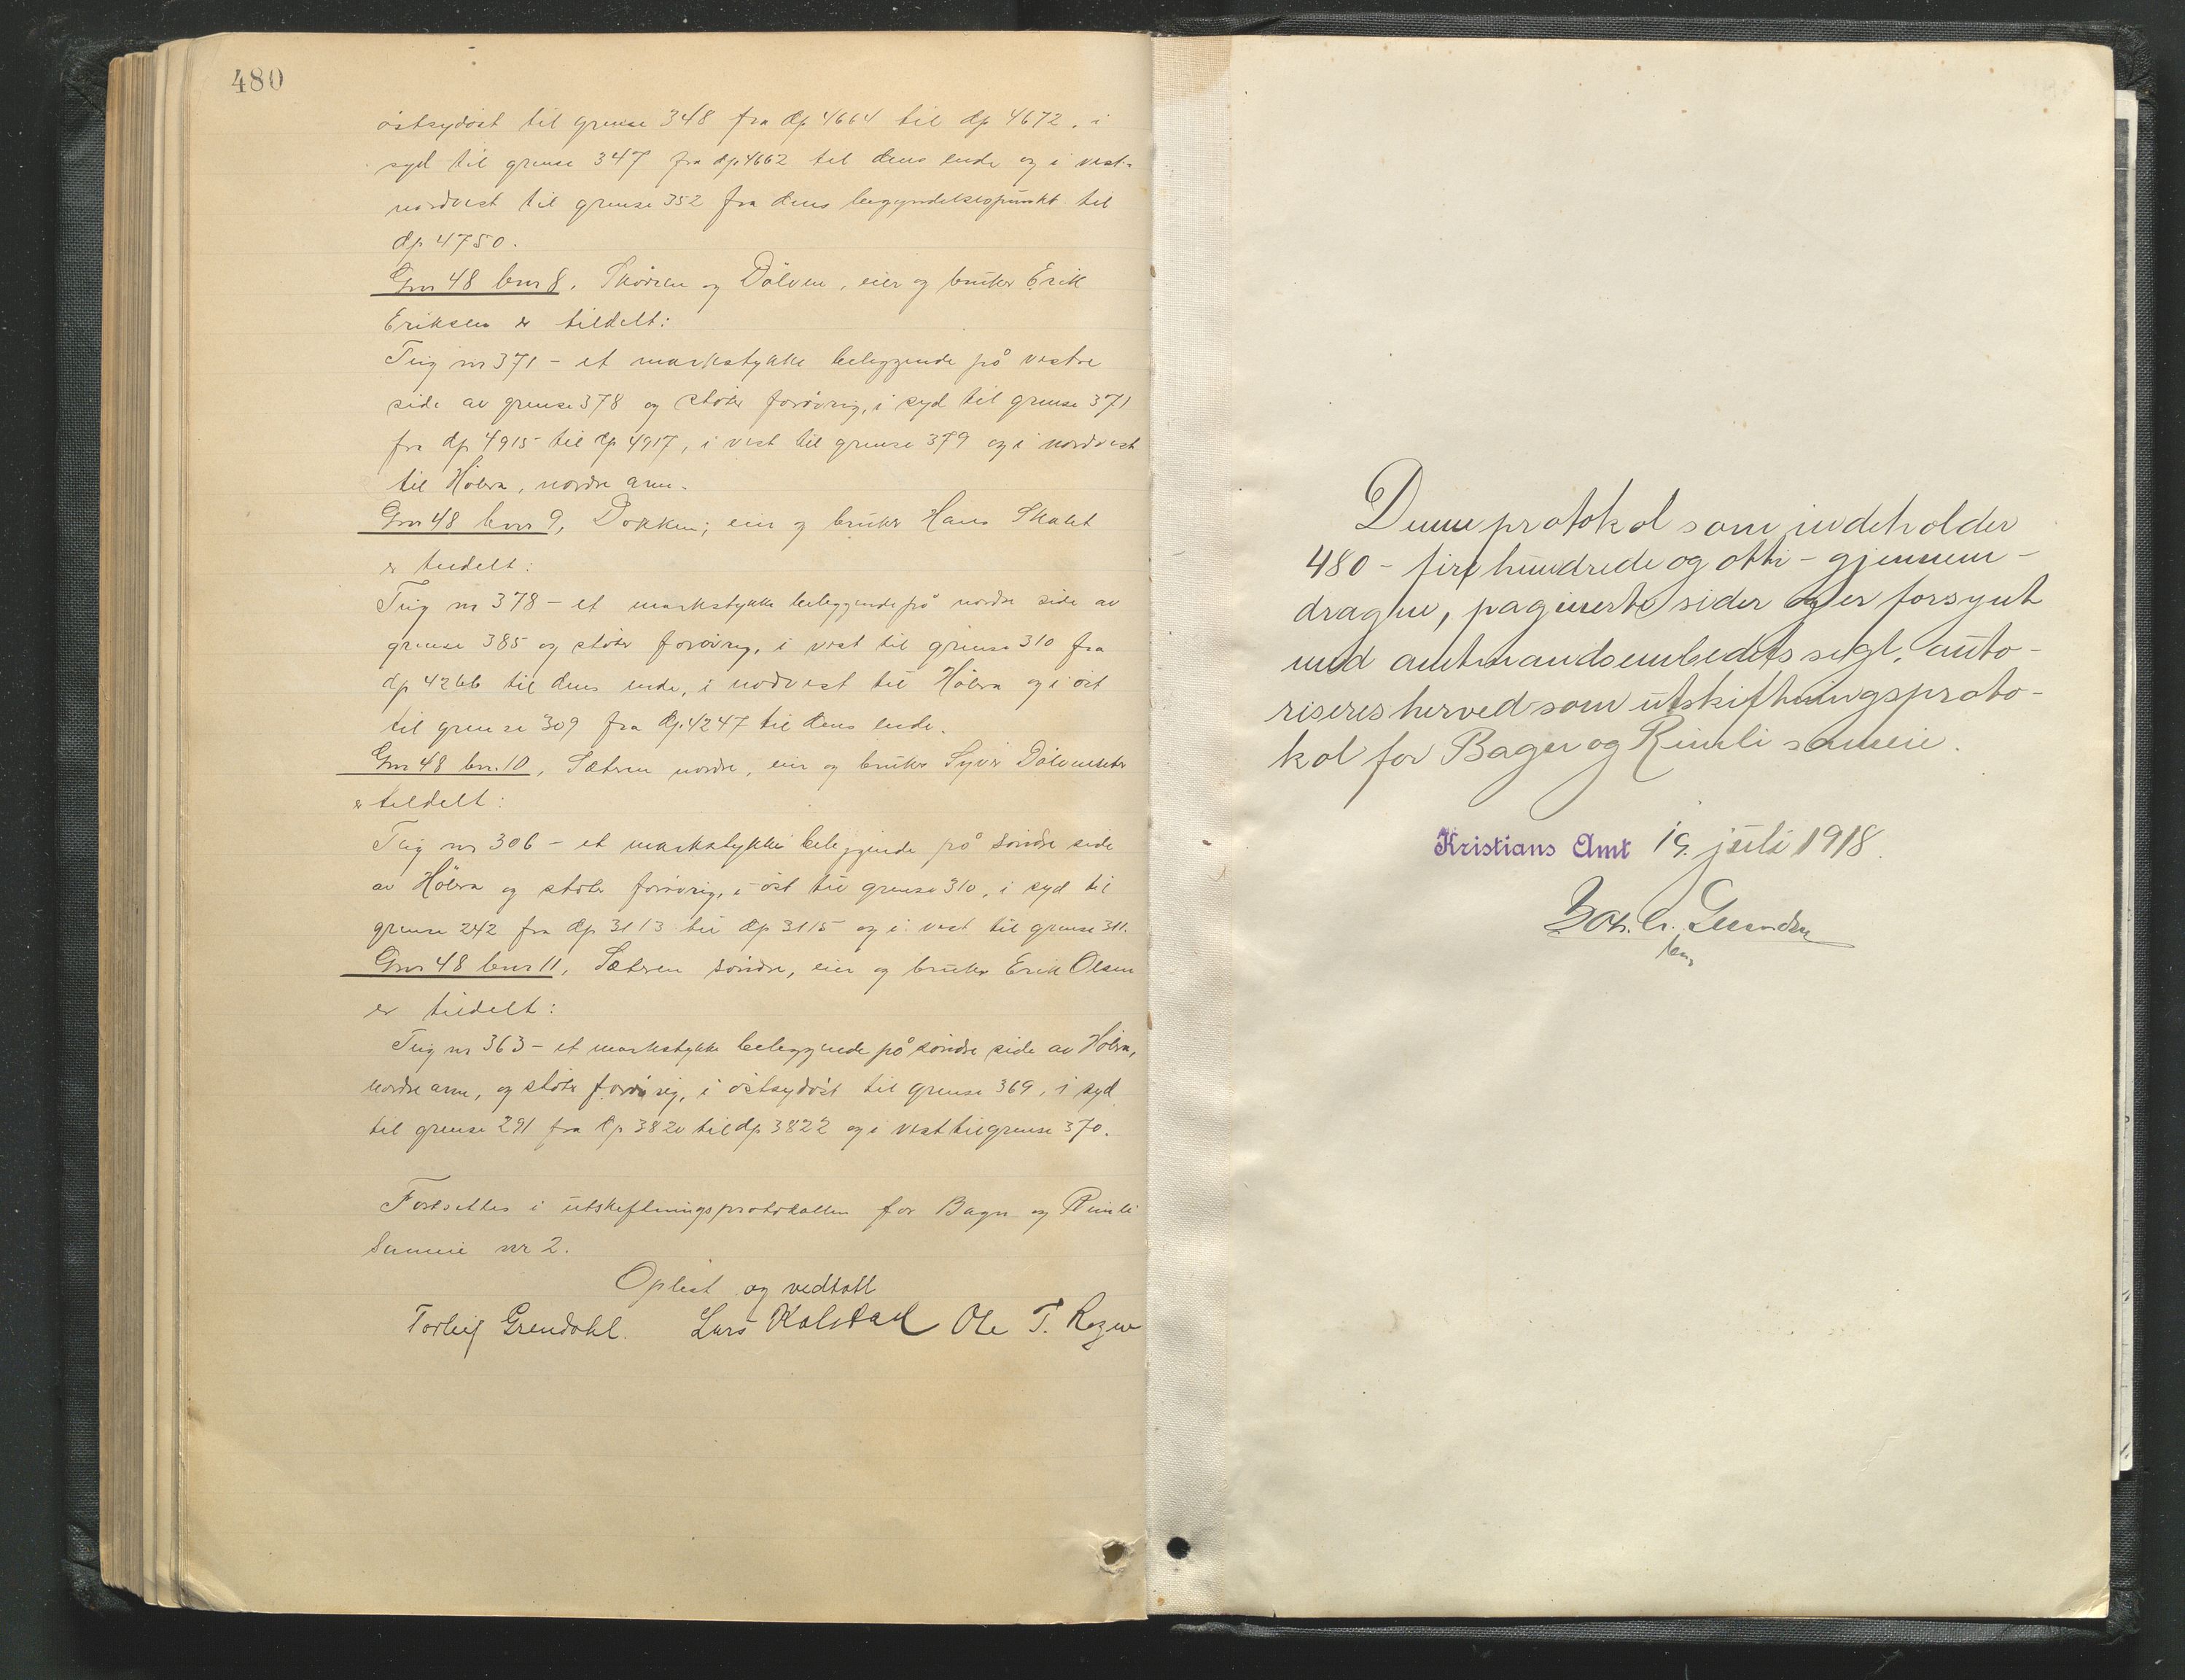 480
östsydöst til grense 348 fra dp 4664 til dp 4672, i
syd til grense 347 fra dp 4662 til dens ende og i vest-
nordvest til grense 352 fra dens begyndelsespunkt til
dp 4750.
Gnr 48 bnr 8, og Dölven, eier og bruker Erik
Eriksen er tildelt:
Teig nr 371 - et markstykke beliggende på vestre
side av grense 378 og støter forøvrig, i syd til grense 371
fra dp 4915 til dp 4917, i vest til grense 379 og i nordvest
til Hölera, nordre arm.
Gnr 48 bnr 9, Dokken; eier og bruker Hans
er tildelt:
Teig nr 378 - et markstykke beliggende på nordre side av
grense 385 og støter forøvrig, i vest til grense 310 fra
dp 4266 til dens ende, i nodvest til Hölera og i öst
til grense 309 fra dp. 4247 til dens ende.
Gnr 48 bnr. 10, Sætren nordre, eier og bruker Syver Dölvensæter
er tildelt:
Teig nr 306 - et markstykke beliggende på söndre side
av Hölera og støter forøvrig, i öst til grense 310, i syd til
grense 242 fra dp 3113 til dp 3115 og i vest til grense 311.
Gnr 48 bnr 11, Sætren söndre, eier og bruker Erik Olsen
er tildelt:
Teig nr 363 - et markstykke beliggende på söndre side av Hölera,
nordre arm, og støter forøvrig, i östsydöst til grense 369, i syd
til grense 291 fra dp 3820 til dp 3822 og i vest til grense 370.
Fortsettes i utskiftningsprotokollen for Bagn og Reinli
Sameie nr 2.
Oplest og vedtatt
Torleif Grendahl. Lars Kolstad Ole T.
Denne protokol som indeholder
480 - fire hundrede og otti - gjennem-
dragne, paginerte sider og er forsynt
med amtmandsembedets segl, auto-
riseres herved som utskiftningsproto-
kol for Bagn og Reinli sameie.
Kristians Amt 19. juli 1918.